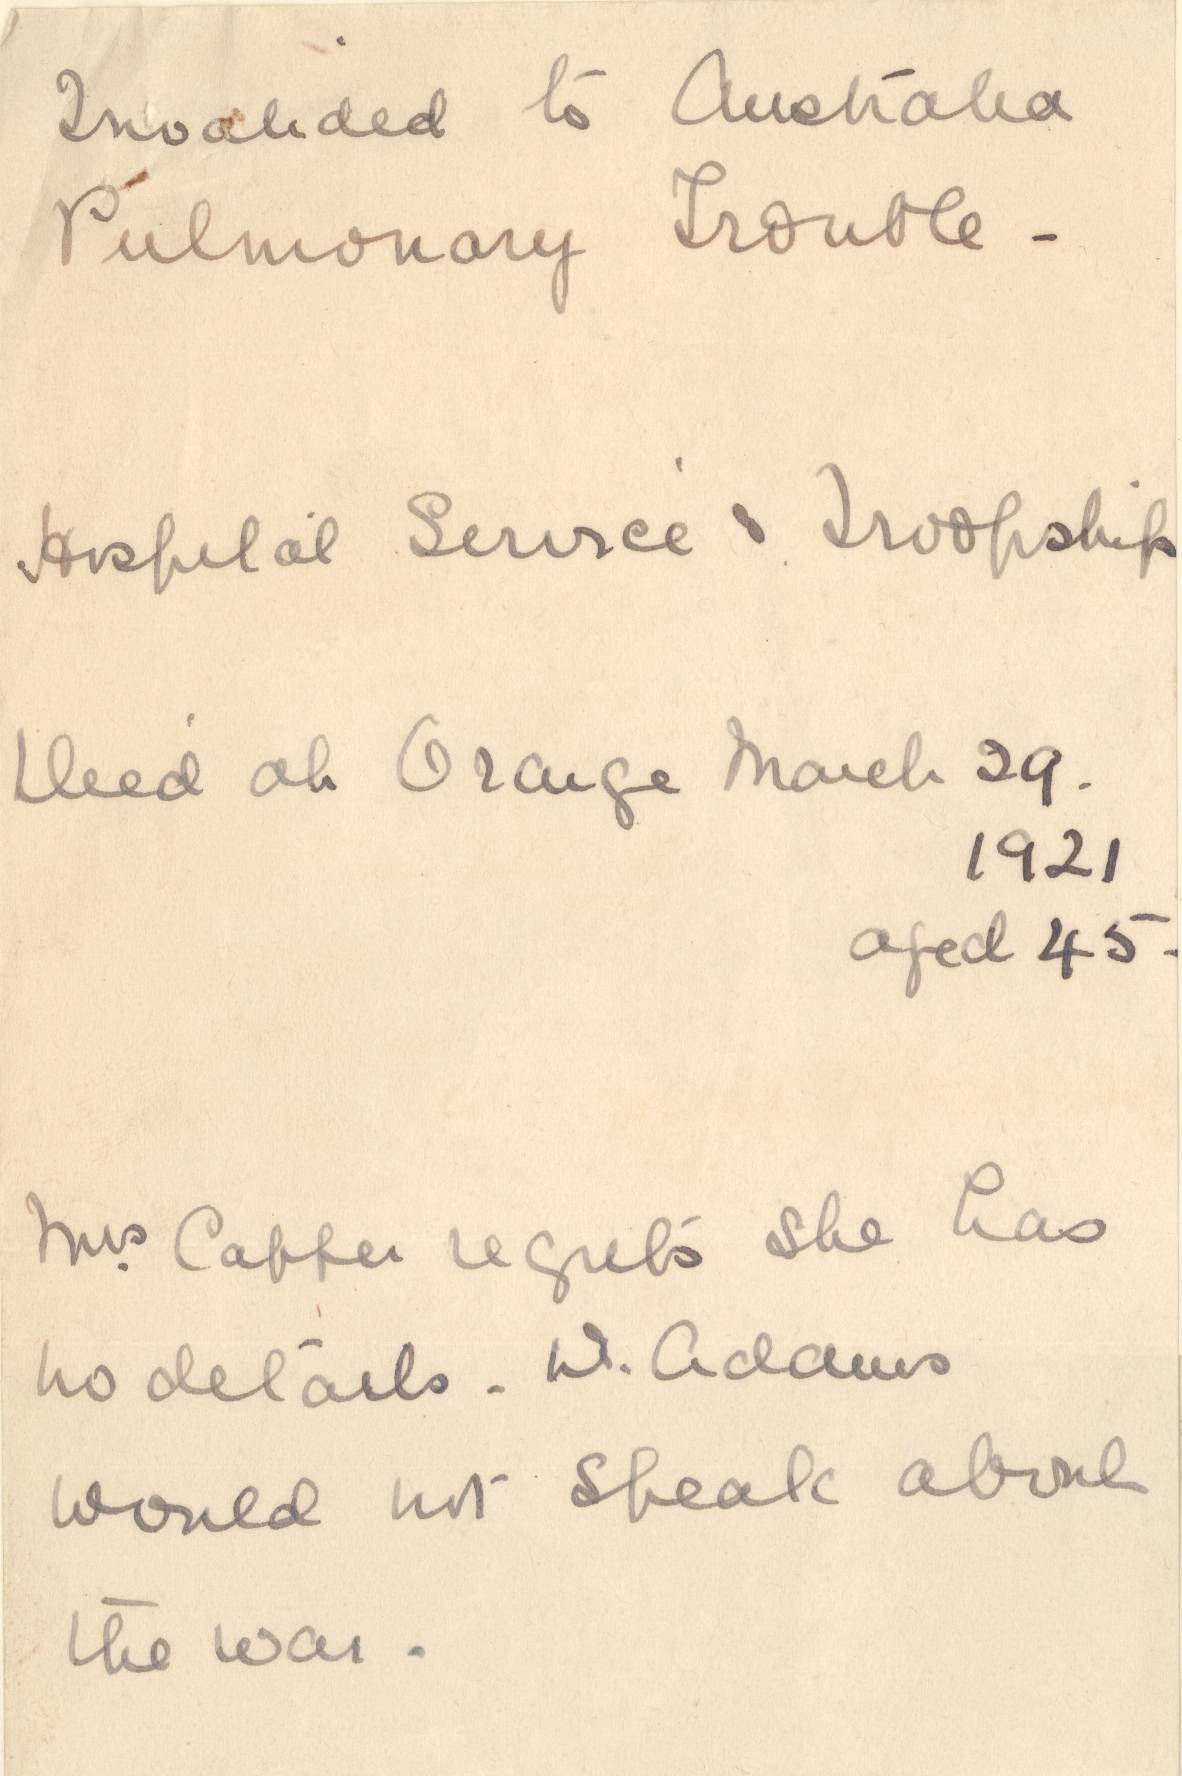 Invalided to Australia
Pulmonary Trouble -
Hospital Service & Troopship
Died at Orange March 29.
1921
aged 45.
Mrs. Capper regrets she has
no details. W. Adams
would not speak about
the war.